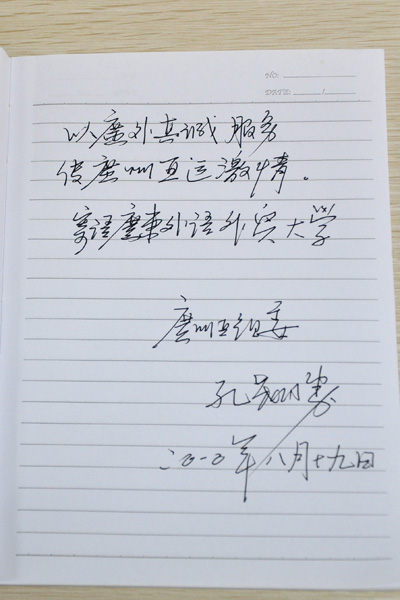 NO:
DATE: / /
以廣外真诚服务
传廣州亚运激情。
寄语廣東外语外贸大学
廣州亚组委
孔
二〇一〇年八月十九日